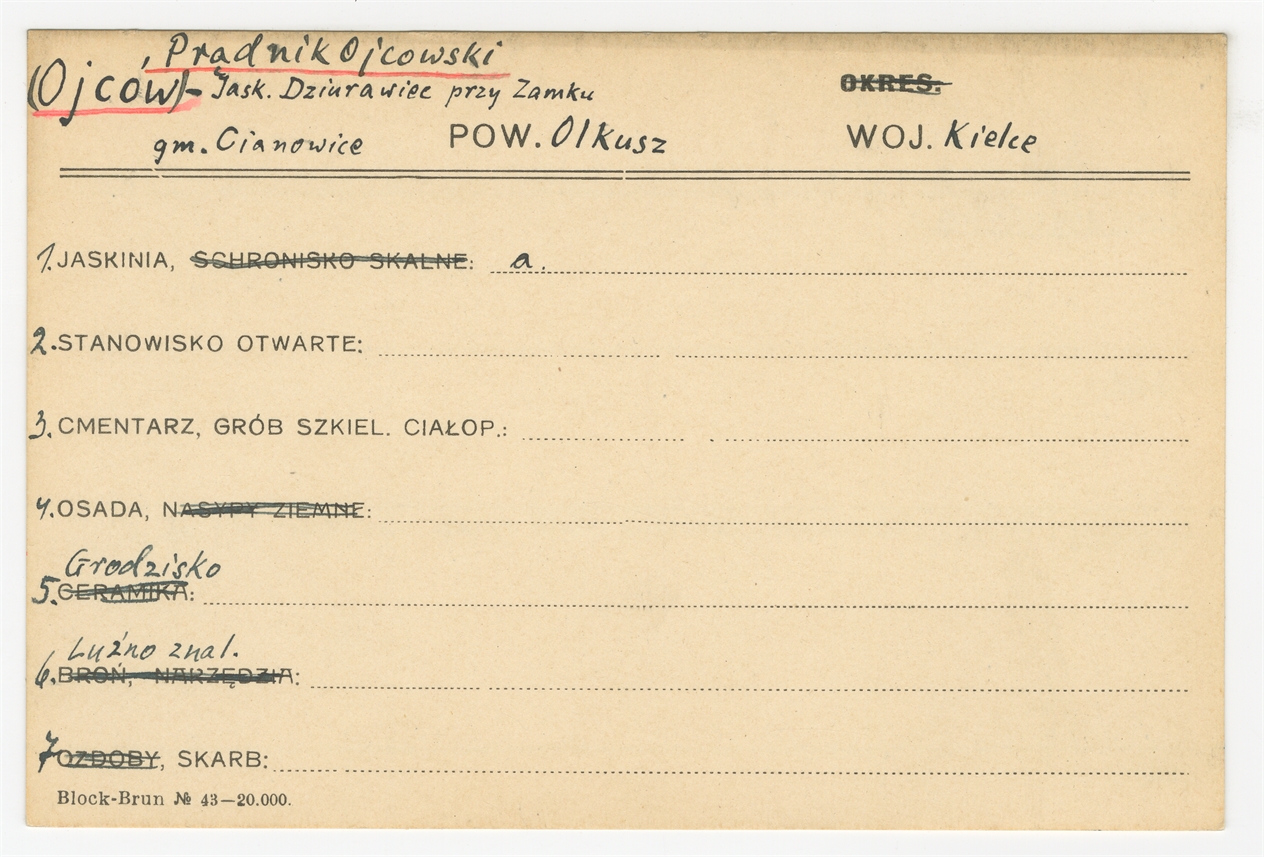 Prądnik Ojcowski
(Ojców) - Jask. Dziurawiec przy Zamku
OKRES.
gm. Cianowice POW. Olkusz WOJ. Kielce
1. JASKINIA, SCHRONISKO SKALNE: a.
2. STANOWISKO OTWARTE:
3. CMENTARZ, GRÓB SZKIEL. CIAŁOP.:
4. OSADA, NASYPY ZIEMNE:
Grodzisko
5. CERAMIKA:
Luźno znal.
6. BROŃ, NARZĘDZIA:
7 OZDOBY, SKARB:
Block-Brun № 43—20.000.